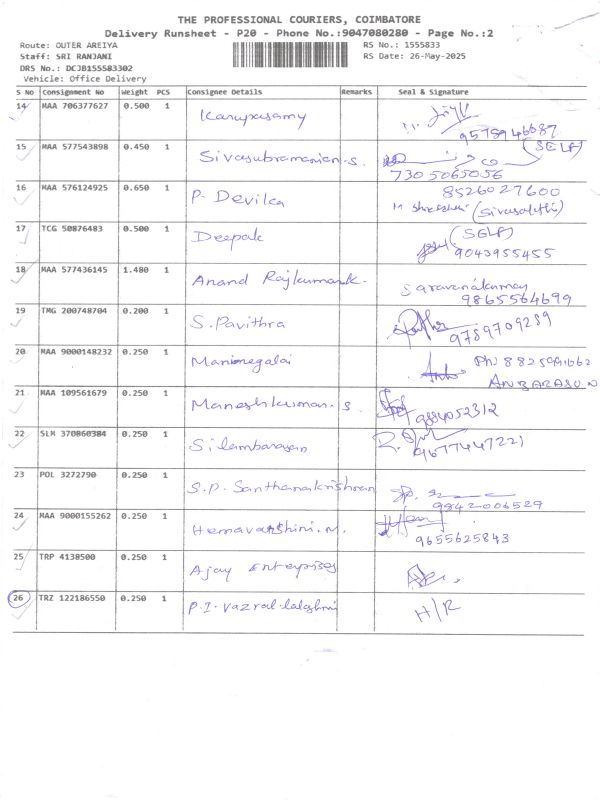 THE PROFESSIONAL COURIERS, COIMBATORE
Delivery Runsheet - P20 - Phone No.:9047080280 - Page No.:2
Route: OUTER AREIYA RS No.: 1555833
Staff: SRI RANJANI RS Date: 26-May-2025
DRS No.: DCJB155583302
Vehicle: Office Delivery
S No Consignment No Weight PCS Consignee Details Remarks Seal & Signature
14 MAA 706377627 0.500 1 Karuppasamy 9578946687
15 MAA 577543898 0.450 1 Sivasubramanian.s. (SELF)
7305065056
16 MAA 576124925 0.650 1 P. Devika 8526027600
M (Sivasakthi)
17 TCG 50876483 0.500 1 Deepak (SELF)
9043955455
18 MAA 577436145 1.480 1 Anand Rajkumar.k. Saravanakumar
9865564699
19 TMG 200748704 0.200 1 S.Pavithra 9789709289
20 MAA 9000148232 0.250 1 Manimegalai Ph:
ANBARASU N
21 MAA 109561679 0.250 1 Maneshkumar.s. 9884052312
22 SLM 370860384 0.250 1 Silambarasan 9677447221
23 POL 3272790 0.250 1 S.P. Santhanakrishnan 9942006529
24 MAA 9000155262 0.250 1 Hemavarshini.M. 9655625843
25 TRP 4138500 0.250 1 Ajay Enterprises
26 TRZ 122186550 0.250 1 P.I. H/R